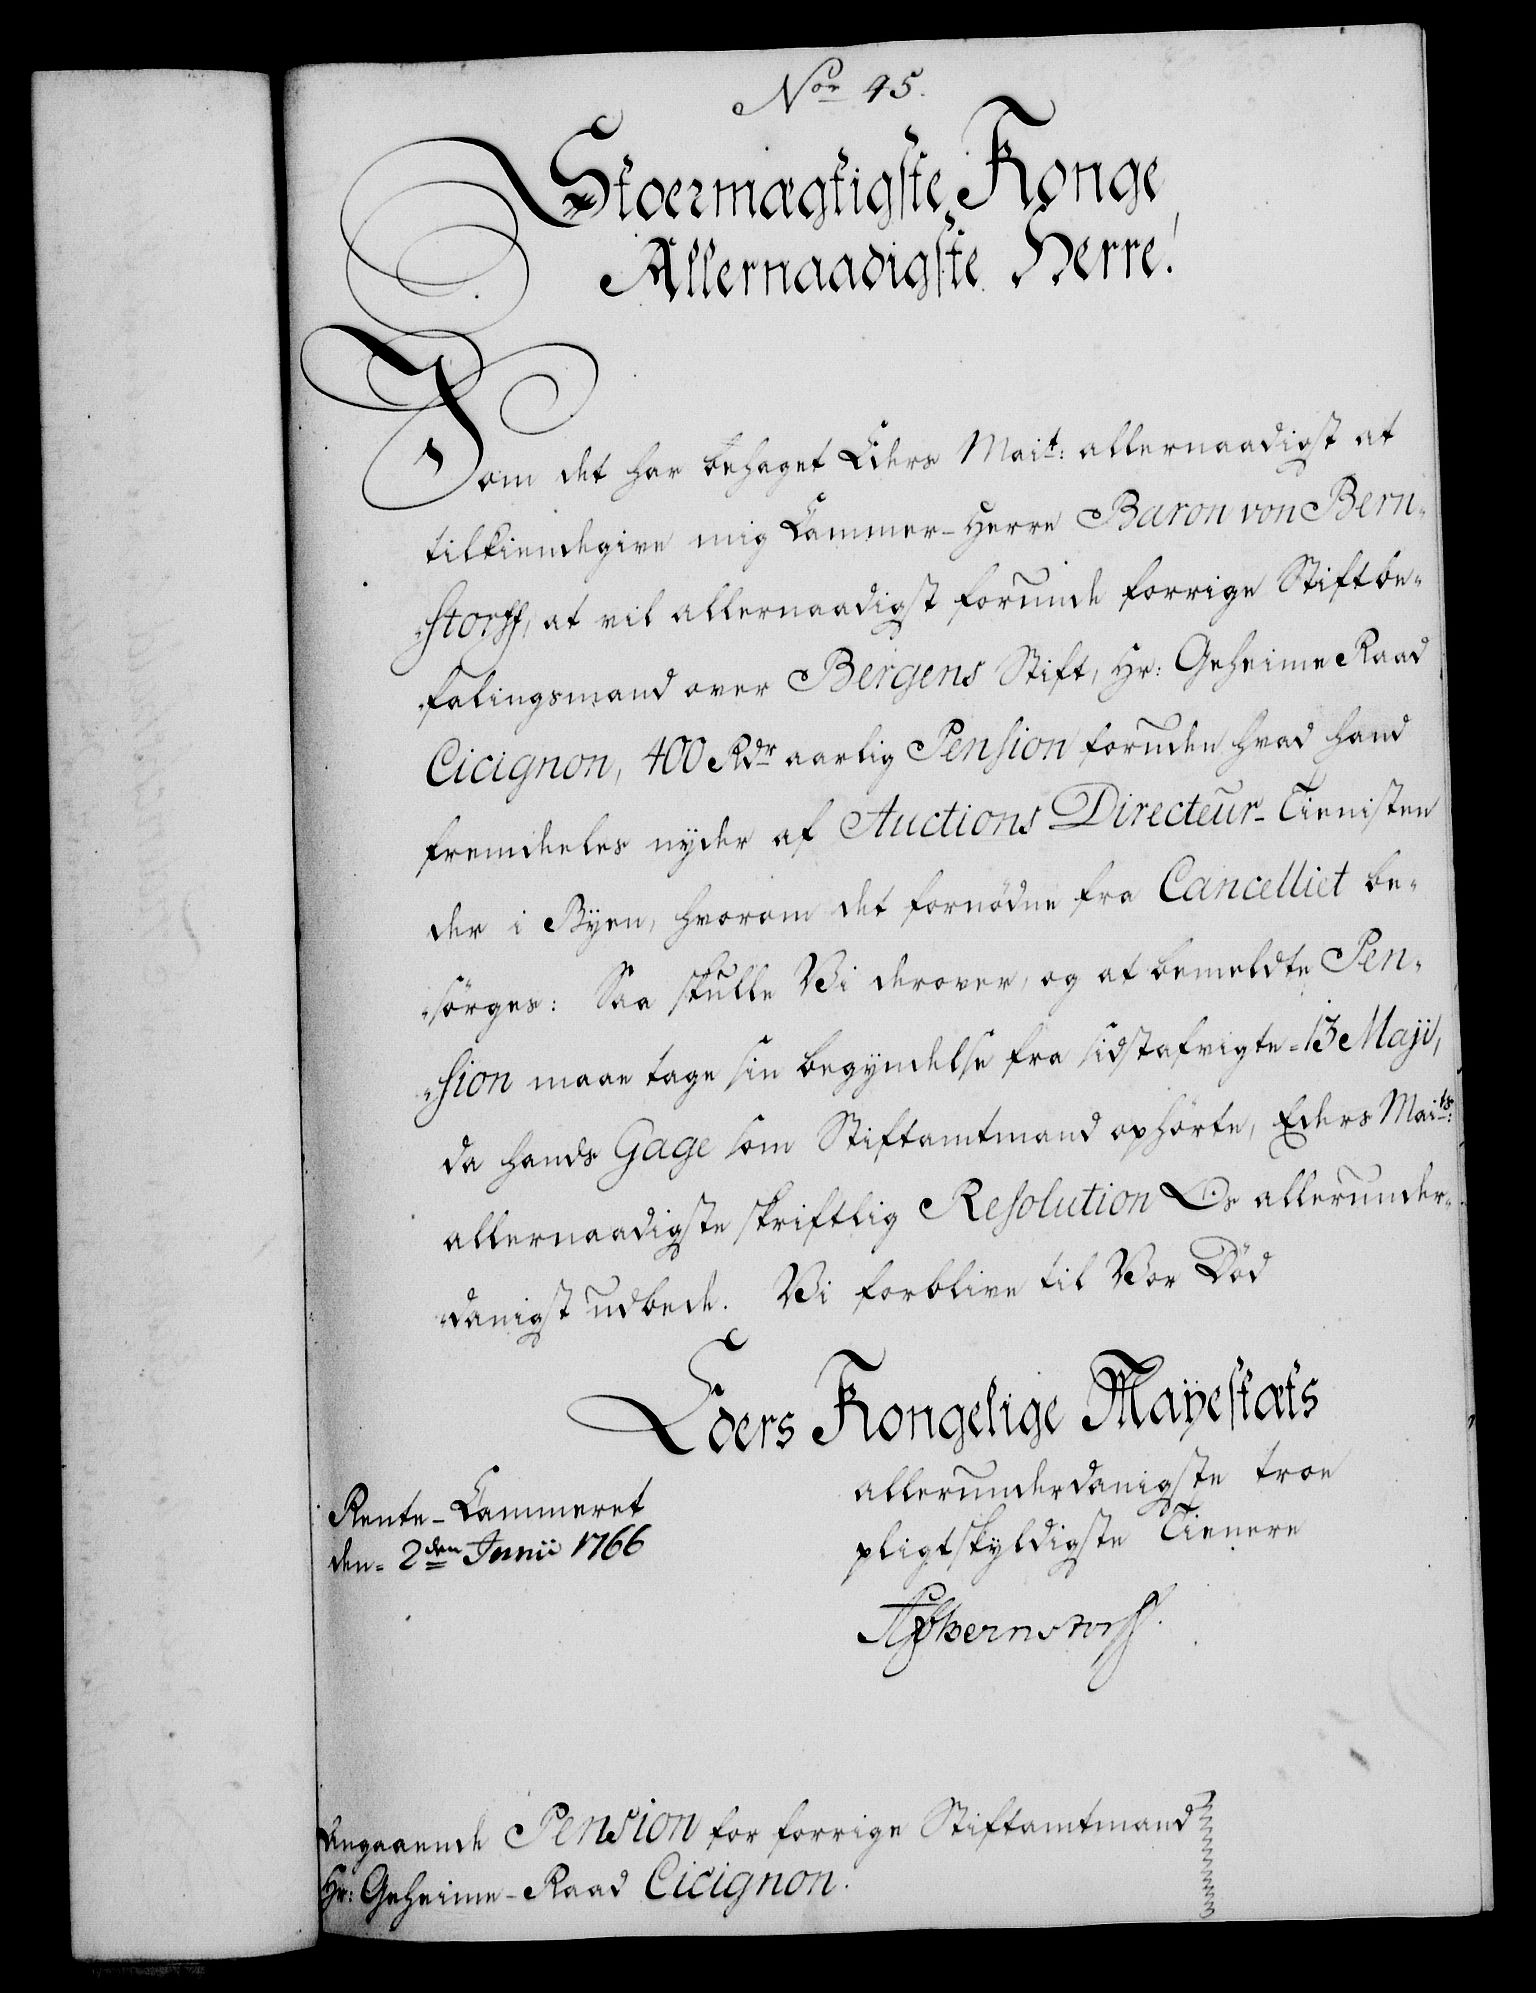 Nor 45.
Stoermægtigste Konge
Allernaadigste Herre!
Som det har behaget Eders Mait: allernaadigst at
tilkiendegive mig Cammer-Herre Baron von Bern-
-storff, at vil allernaadigst forunde forrige Stiftbe-
-falingsmand over Bergens Stift, Hr: Geheime Raad
Cicignon, 400 Rdr aarlig Pension foruden hvad hand
fremdeeles nyder af Auctions Directeur-Tienisten
der i Byen, hvorom det fornødne fra Cancelliet be-
-sørges: Saa skulle Vi derover, og at bemeldte Pen-
-sion maae tage sin begyndelse fra sidstafvigte 13 Maji,
da hands Gage som Stiftamtmand ophørte, Eders Maits:
allernaadigste skriftlig Resolution Os allerunder-
-danigst udbede. Vi forblive til Vor Død
Eders Kongelige Mayestæts
allerunderdanigste troe
pligtskyldigste Tienere
Rente-Cammeret
den 2den Junii 1766
Bernstorff.
Angaaende Pension for forrige Stiftamtmand
Hr: Geheime-Raad Cicignon.